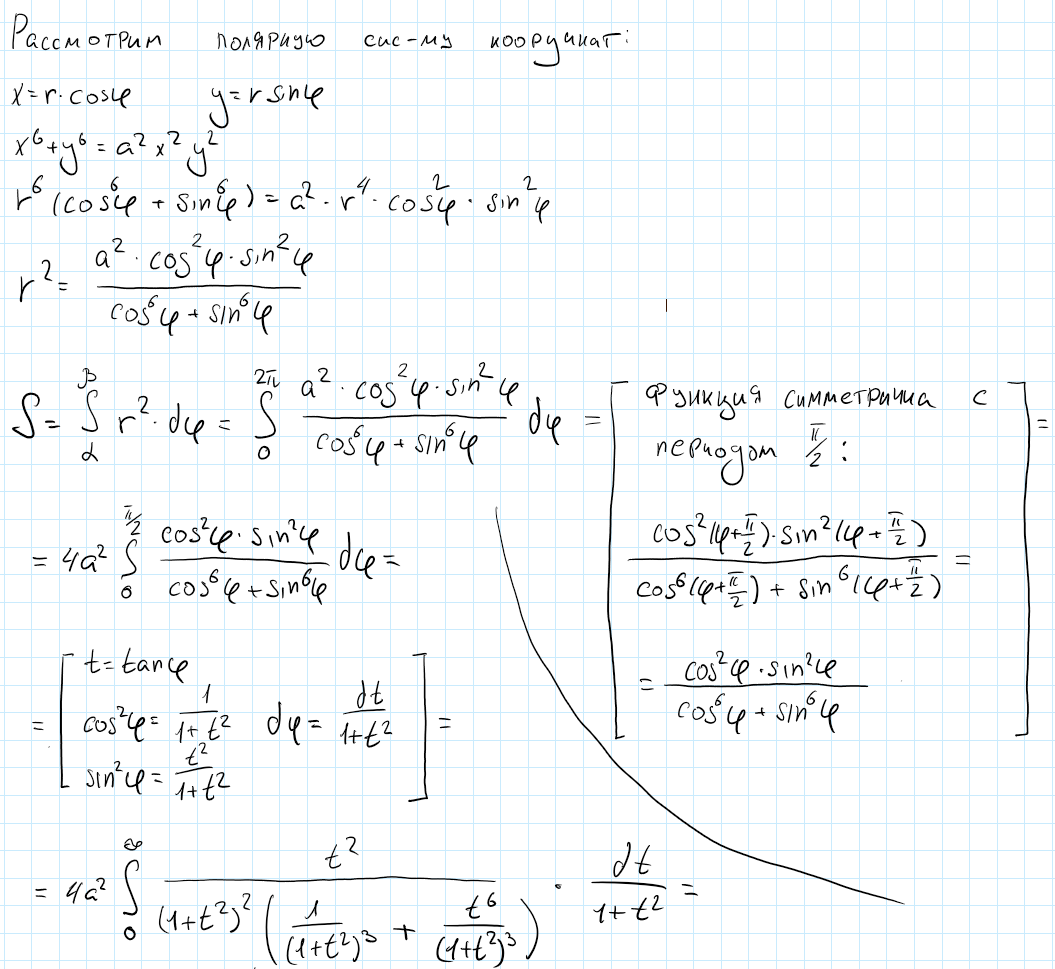 Рассмотрим полярную сис-му координат:
x = r · cosφ y = r sinφ
x⁶ + y⁶ = a² x² y²
r⁶ (cos⁶φ + sin⁶φ) = a² · r⁴ · cos²φ · sin²φ
r² = (a² · cos²φ · sin²φ) / (cos⁶φ + sin⁶φ)
S = ∫_α^β r² · dφ = ∫_0^{2π} (a² · cos²φ · sin²φ) / (cos⁶φ + sin⁶φ) dφ =
[ функция симметрична с
периодом π/2 :
(cos²(φ+π/2) · sin²(φ+π/2)) / (cos⁶(φ+π/2) + sin⁶(φ+π/2)) =
= (cos²φ · sin²φ) / (cos⁶φ + sin⁶φ) ] =
= 4a² ∫_0^{π/2} (cos²φ · sin²φ) / (cos⁶φ + sin⁶φ) dφ =
= [ t = tanφ
cos²φ = 1 / (1+t²) dφ = dt / (1+t²)
sin²φ = t² / (1+t²) ] =
= 4a² ∫_0^∞ t² / ((1+t²)² (1/(1+t²)³ + t⁶/(1+t²)³)) · dt / (1+t²) =